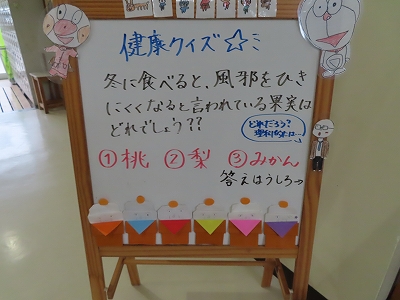 健康クイズ☆ミ
冬に食べると、風邪をひき
にくくなると言われている果実は
どれでしょう??
どれだろう?
①桃 ②梨 ③みかん
答えはうしろ→